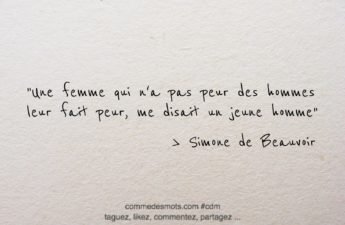 "Une femme qui n'a pas peur des hommes
leur fait peur, me disait un jeune homme"
> Simone de Beauvoir
commedesmots.com #cdm
taguez, likez, commentez, partagez ...